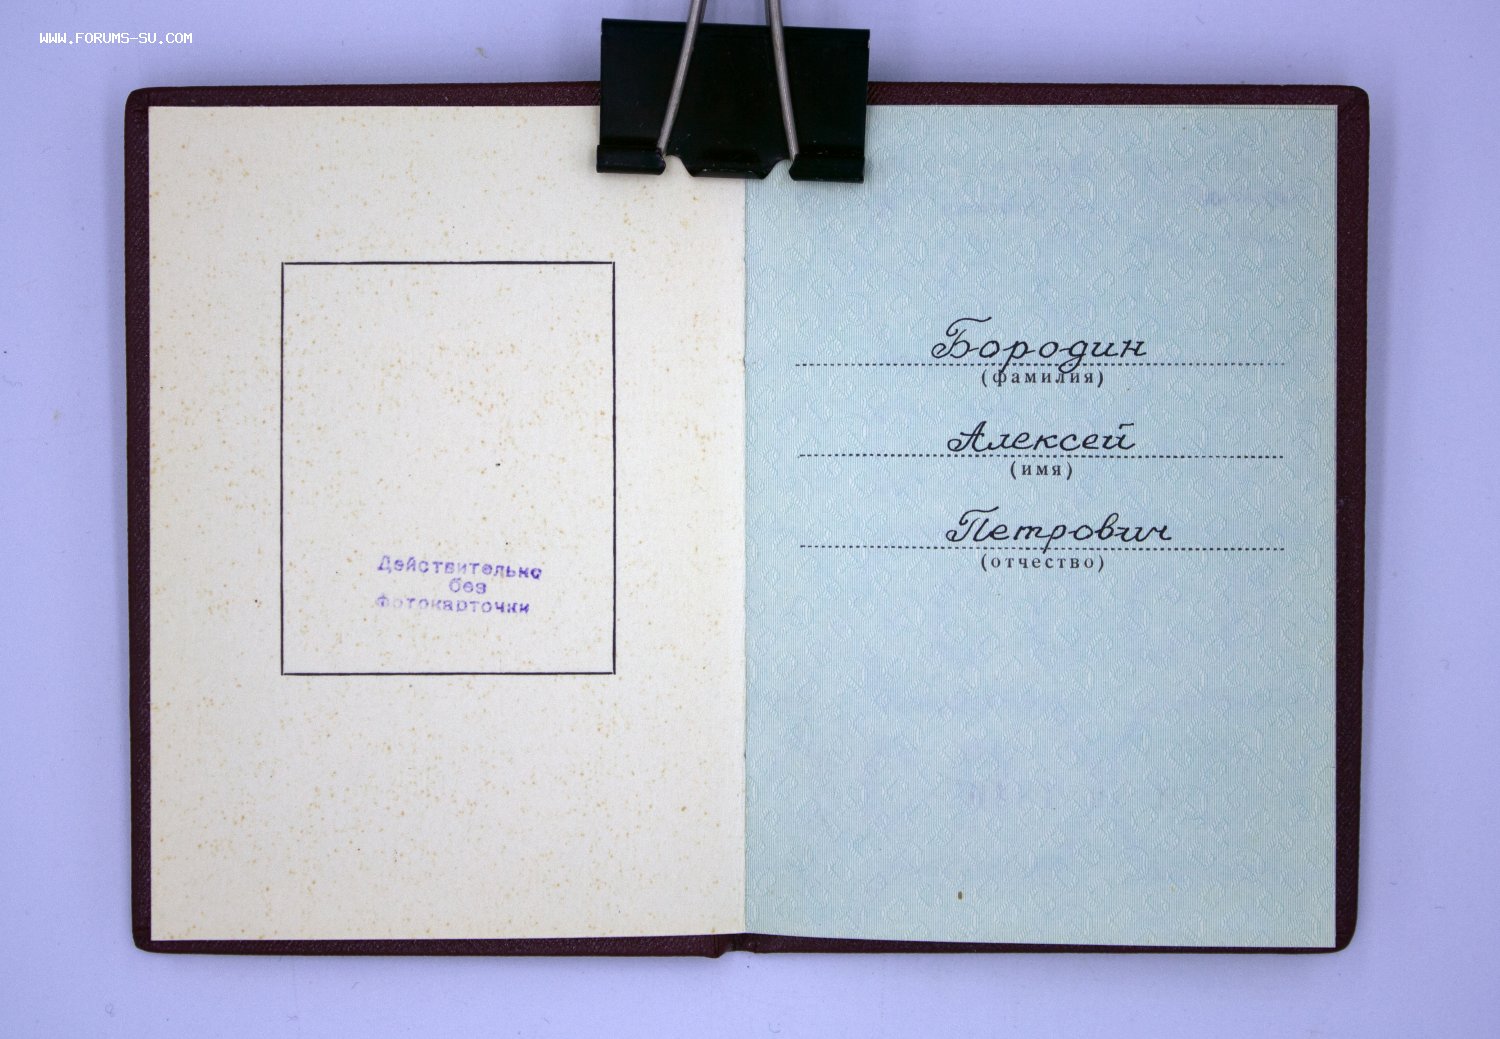 WWW.FORUMS-SU.COM
Действительно
без
фотокарточки
Бородин
(фамилия)
Алексей
(имя)
Петрович
(отчество)